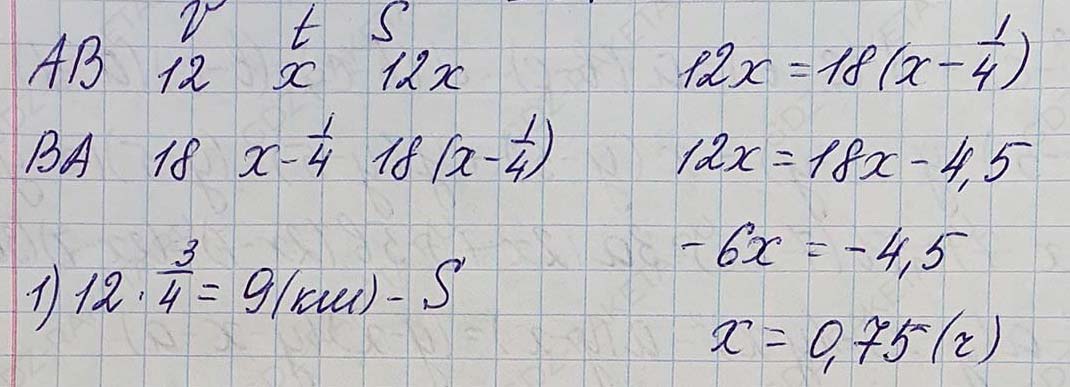 v t S
AB 12 x 12x
BA 18 x - 1/4 18(x - 1/4)
1) 12 · 3/4 = 9 (км) - S
12x = 18(x - 1/4)
12x = 18x - 4,5
-6x = -4,5
x = 0,75 (г)